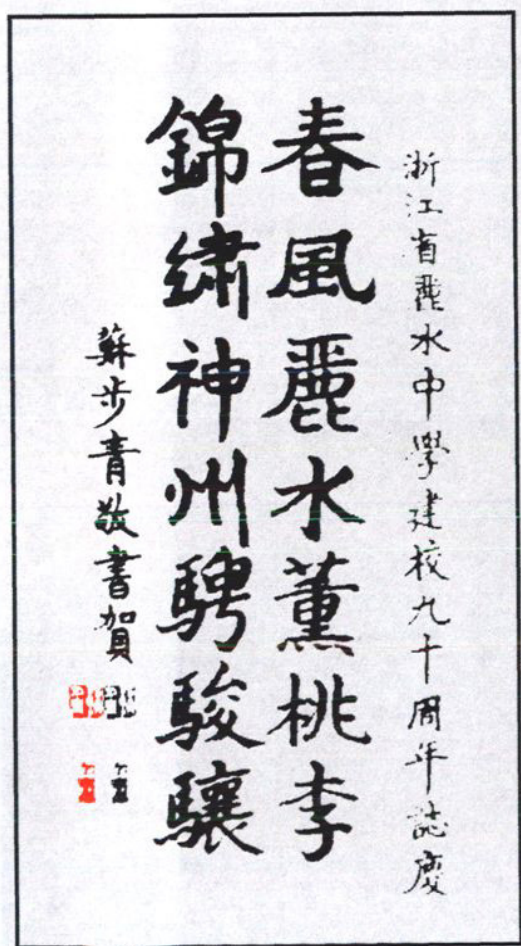 浙江省麗水中學建校九十周年誌慶
春風麗水薰桃李
錦绣神州騁駿驤
蘇步青敬書賀